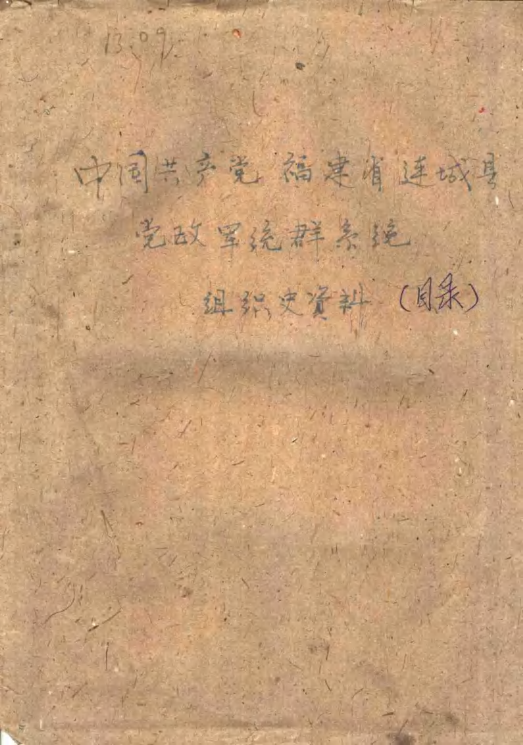 13.09
中国共产党福建省连城县
党政军统群系统
组织史资料(目录)